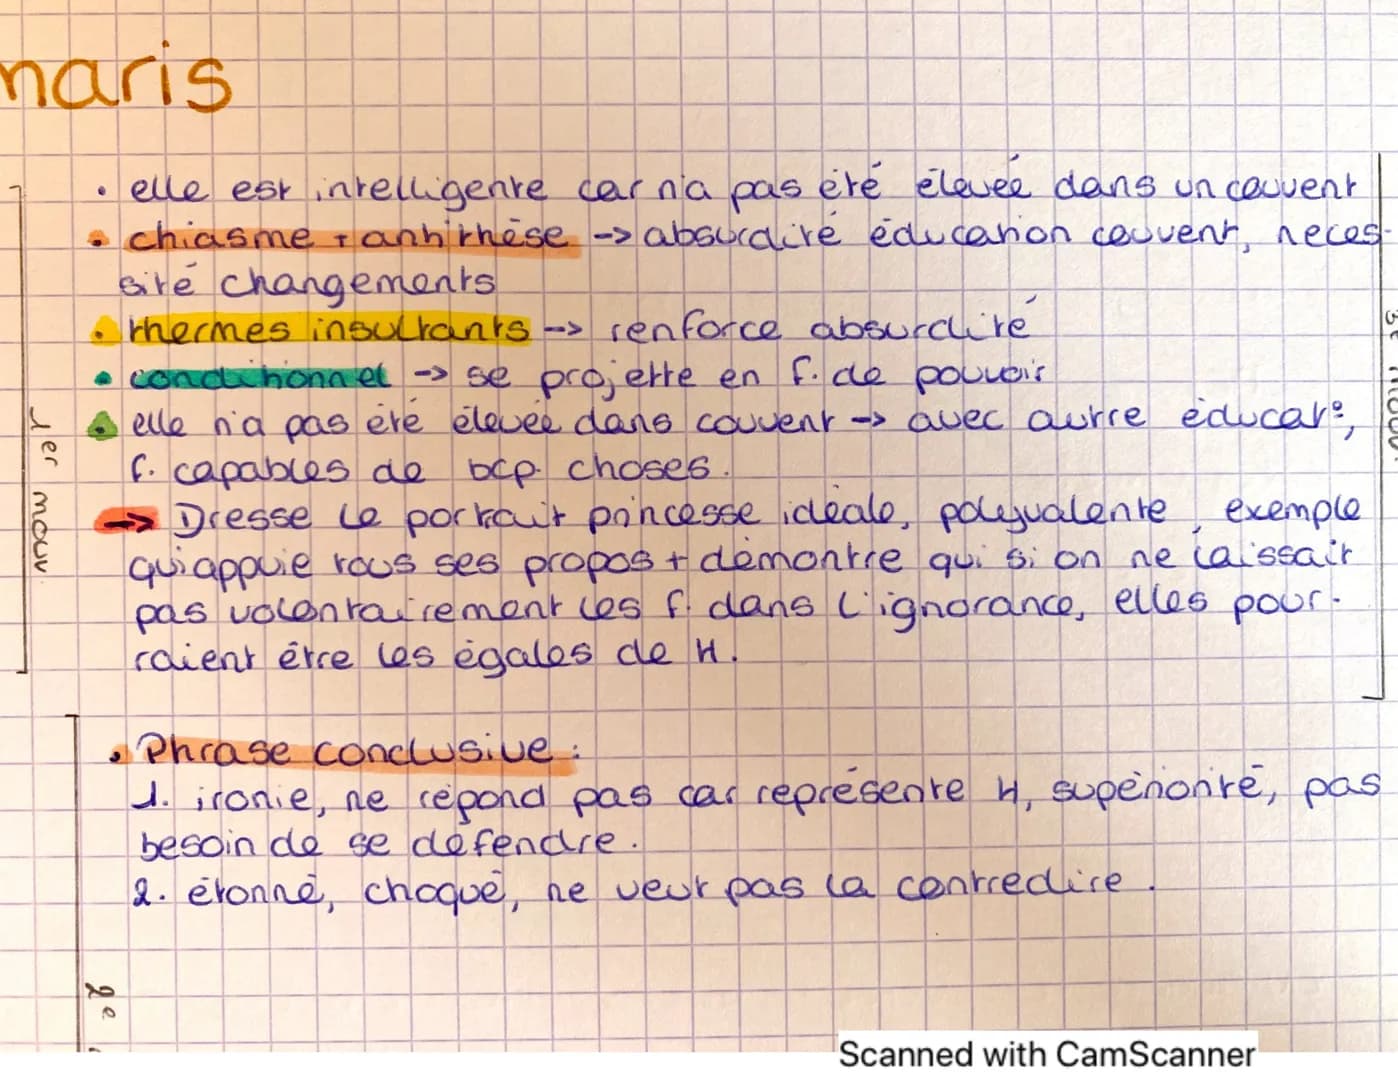 maris
• elle est intelligente car n'a pas été élevée dans un couvent
• chiasme + antithèse -> absurdité éducation couvent, neces-
sité changements
• thermes insultants -> renforce absurdité
• conditionnel -> se projette en f. de pouvoir
• elle n'a pas été élevée dans couvent -> avec autre éducat°,
f. capables de bcp. choses.
-> Dresse le portrait princesse idéale, polyvalente, exemple
qui appuie tous ses propos + démontre qui si on ne laissait
pas volontairement les f. dans l'ignorance, elles pour-
raient être les égales de H.
1er mouv.
• Phrase conclusive :
1. ironie, ne répond pas car représente H, supériorité, pas
besoin de se défendre.
2. étonné, choqué, ne veut pas la contredire.
2e
Scanned with CamScanner